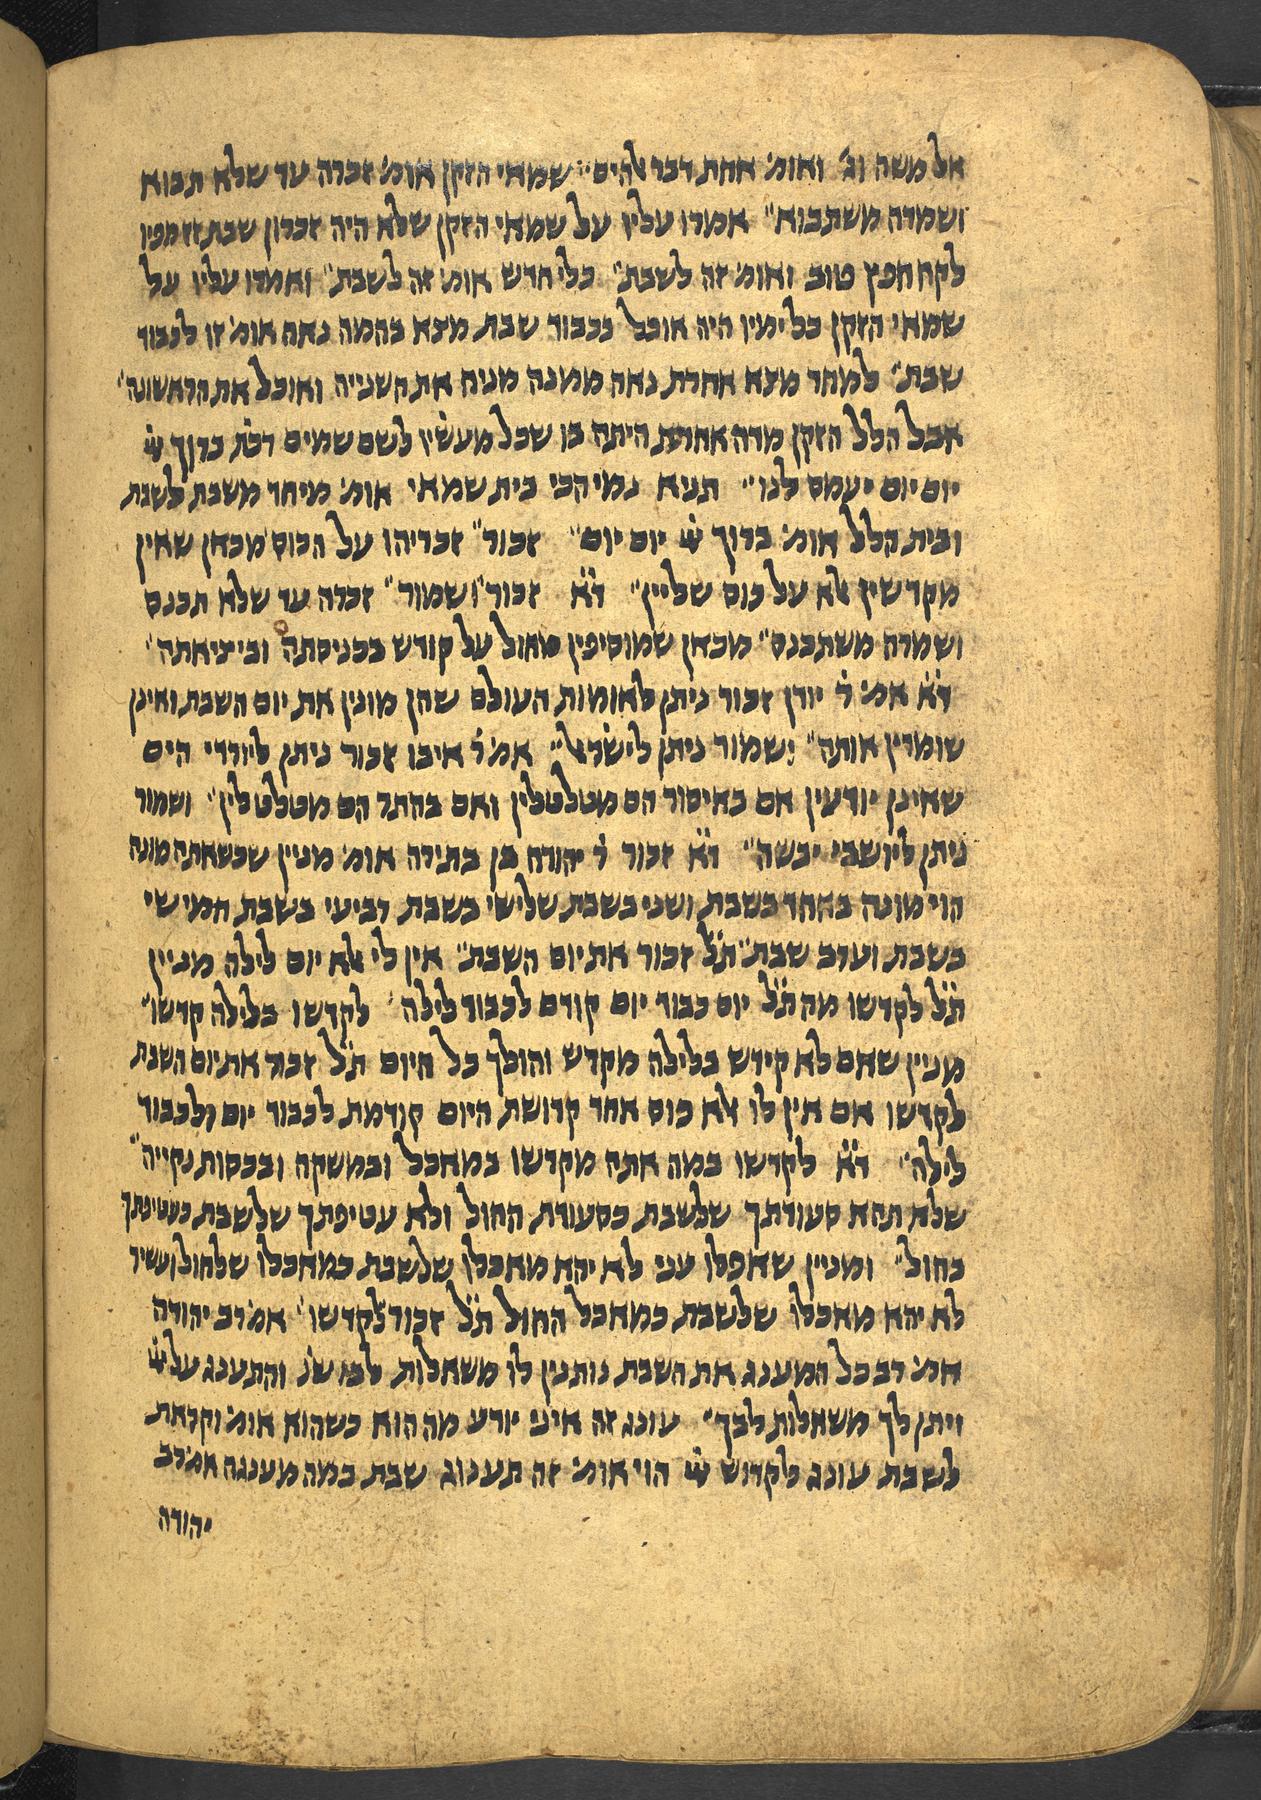 אל משה וג' ואומ' אחת דבר אלהים" שמאי הזקן אומ' זכרה עד שלא תבוא
ושמרה משתבוא" אמרו עליו על שמאי הזקן שלא היה זכרון שבת זז מפיו
לקח חפץ טוב ואומ' זה לשבת" כלי חדש אומ' זה לשבת" ואמרו עליו על
שמאי הזקן כל ימיו היה אוכל לכבוד שבת מצא בהמה נאה אומ' זו לכבוד
שבת" למחר מצא אחרת נאה ממנה מניח את השנייה ואוכל את הראשונה"
אבל הלל הזקן מדה אחרת היתה בו שכל מעשיו לשם שמים דכת' ברוך ייי
יום יום יעמס לנו" תניא נמי הכי בית שמאי אומ' מיחד משבת לשבת
ובית הלל אומ' ברוך ייי יום יום" זכור" זכריהו על הכוס מכאן שאין
מקדשין אלא על כוס שליין" ד'א' זכור" ושמור" זכרה עד שלא תכנס
ושמרה משתכנס" מכאן שמוסיפין מחול על קודש בכניסתה וביציאתה"
ד'א' אמ' ר' יודן זכור ניתן לאומות העולם שהן מונין את יום השבת ואינן
שומרין אותה" ושמור ניתן לישראל" אמ' ר' איבו זכור ניתן ליורדי הים
שאינן יודעין אם באיסור הם מטלטלין ואם בהתר הם מטלטלין" ושמור
ניתן ליושבי יבשה" ד'א' זכור ר' יהודה בן בתירה אומ' מניין שכשאתה מונה
הוי מונה באחד בשבת ושני בשבת שלישי בשבת רביעי בשבת חמישי
בשבת וערב שבת" ת'ל' זכור את יום השבת" אין לי אלא יום לילה מניין
ת'ל' לקדשו מה ת'ל' יום כבוד יום קודם לכבוד לילה" לקדשו בלילה קדשו"
מניין שאם לא קידש בלילה מקדש והולך כל היום ת'ל' זכור את יום השבת
לקדשו אם אין לו אלא כוס אחד קדושת היום קודמת לכבוד יום ולכבוד
לילה" ד'א' לקדשו במה אתה מקדשו במאכל ובמשקה ובכסות נקייה"
שלא תהא סעודתך שלשבת כסעודת החול ולא עטיפתך שלשבת כעטיפתך
בחול" ומניין שאפלו עני לא יהא מאכלו שלשבת כמאכלו שלחול ועשיר
לא יהא מאכלו שלשבת כמאכל החול ת'ל' זכור לקדשו" אמ' רב יהודה
אמ' רב כל המענג את השבת נותנין לו משאלות לבו שנ' והתענג על ייי
ויתן לך משאלות לבך" עונג זה איני יודע מה הוא כשהוא אומ' וקראת
לשבת עונג לקדוש ייי הוי אומ' זה תענוג שבת במה מענגה אמ' רב
יהודה